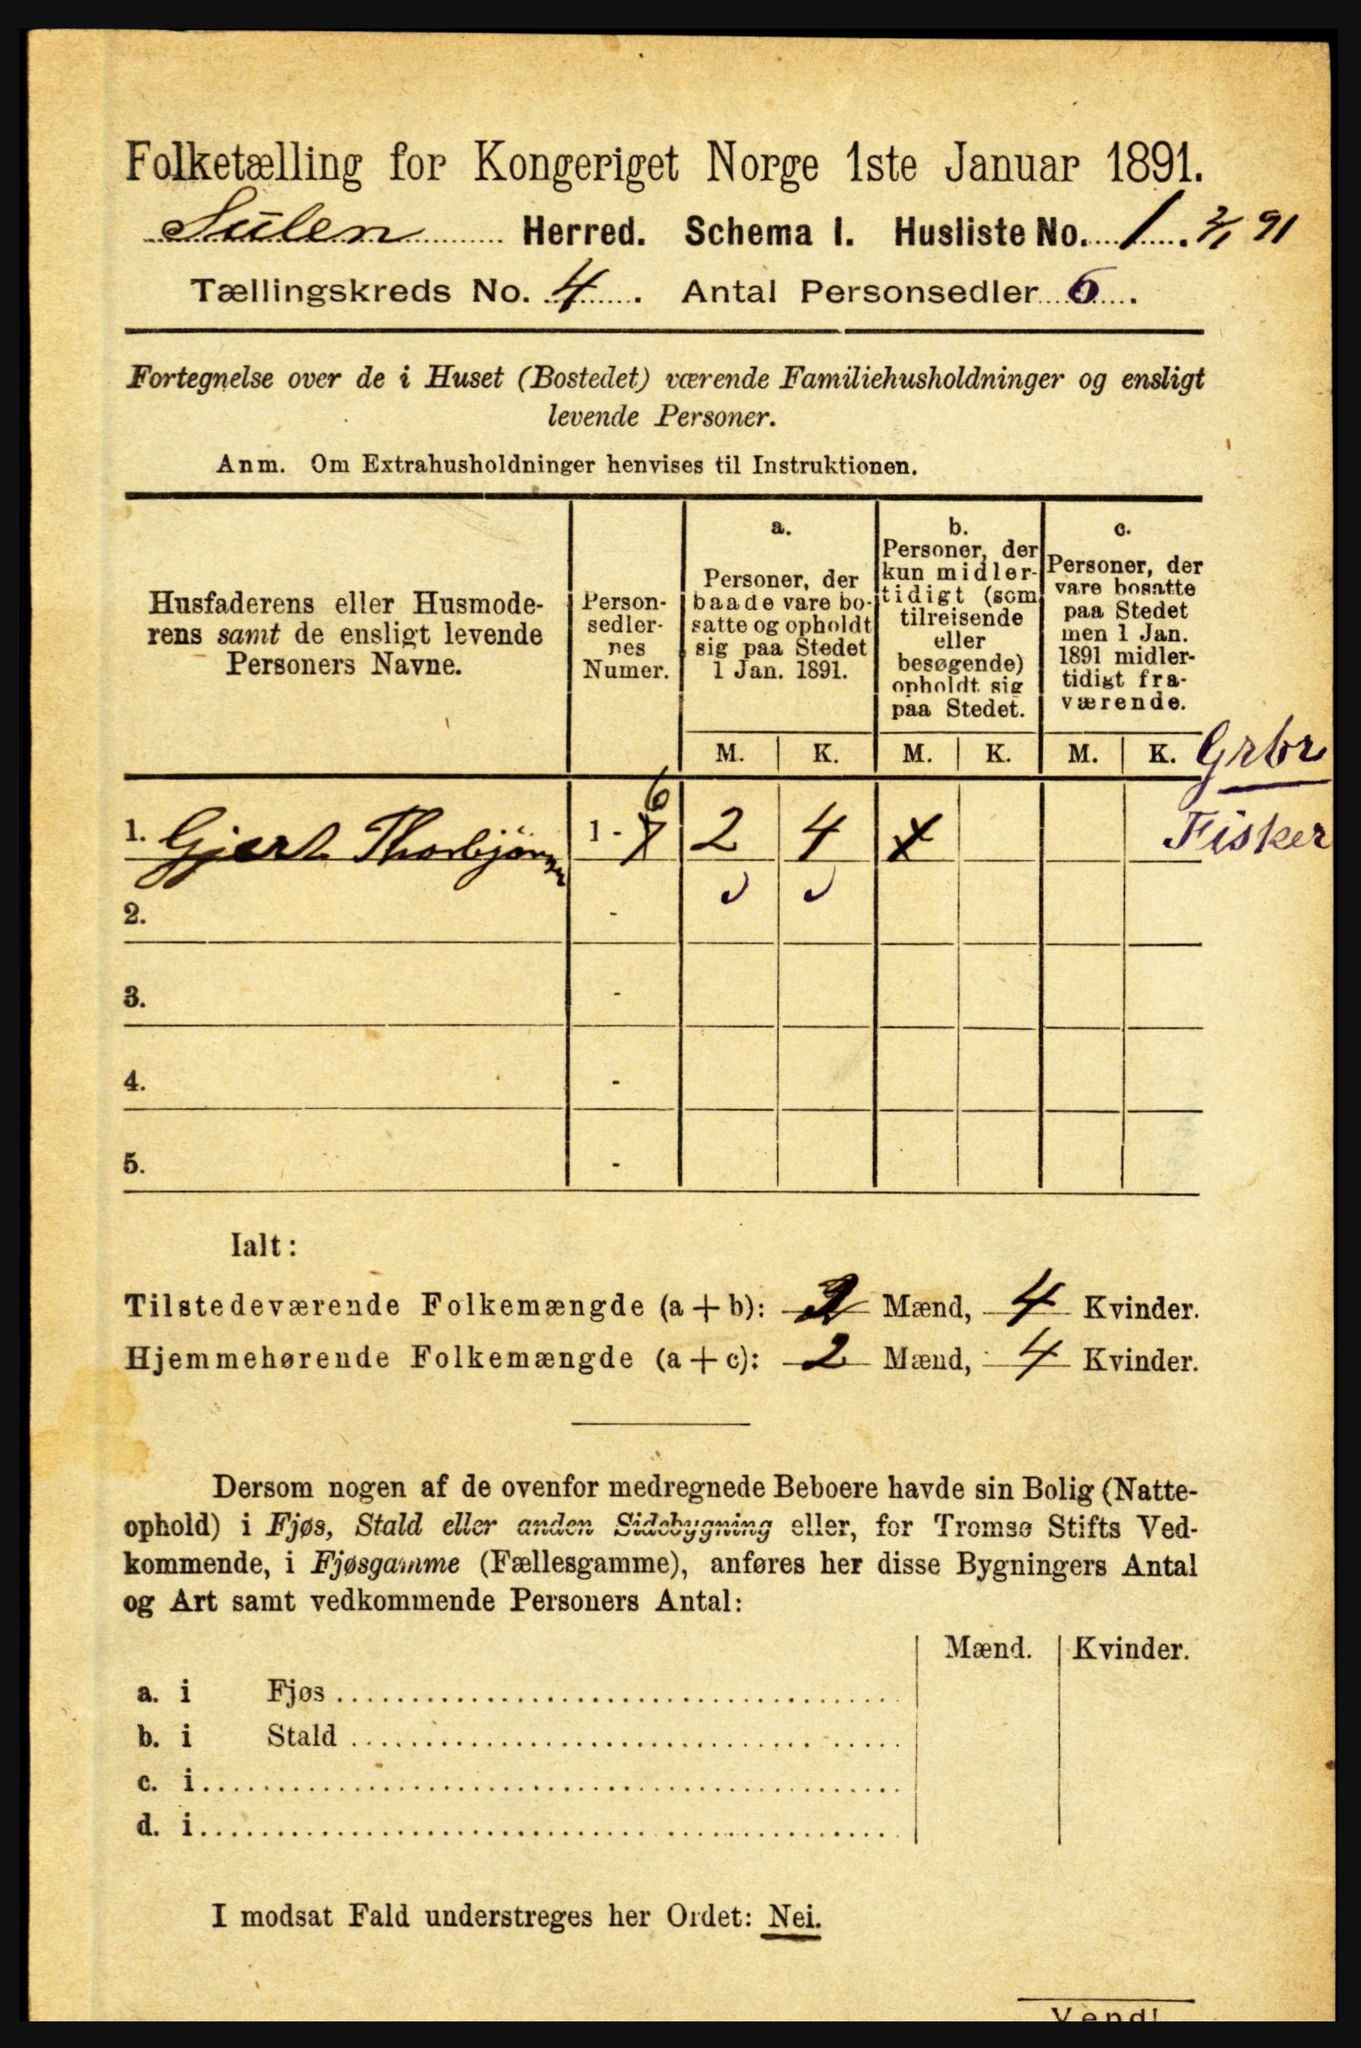 Folketælling for Kongeriget Norge 1ste Januar 1891.
Sulen Herred. Schema I. Husliste No. 1. 2/1 91
Tællingskreds No. 4. Antal Personsedler 6.
Fortegnelse over de i Huset (Bostedet) værende Familiehusholdninger og ensligt
levende Personer.
Anm. Om Extrahusholdninger henvises til Instruktionen.
Husfaderens eller Husmode-
rens samt de ensligt levende
Personers Navne.
Person-
sedler-
nes
Numer.
a.
Personer, der
baade vare bo-
satte og opholdt
sig paa Stedet
1 Jan. 1891.
b.
Personer, der
kun midler-
tidigt (som
tilreisende
eller
besøgende)
opholdt sig
paa Stedet.
c.
Personer, der
vare bosatte
paa Stedet
men 1 Jan.
1891 midler-
tidigt fra-
værende.
M. K. M. K. M. K. Grbr
6
1. Gjert Thorbjørns 1 - 7 2 4 Fisker
2. -
3. -
4. -
5. -
Ialt:
Tilstedeværende Folkemængde (a + b): 2 Mænd, 4 Kvinder.
Hjemmehørende Folkemængde (a + c): 2 Mænd, 4 Kvinder.
Dersom nogen af de ovenfor medregnede Beboere havde sin Bolig (Natte-
ophold) i Fjøs, Stald eller anden Sidebygning eller, for Tromsø Stifts Ved-
kommende, i Fjøsgamme (Fællesgamme), anføres her disse Bygningers Antal
og Art samt vedkommende Personers Antal:
Mænd. Kvinder.
a. i Fjøs
b. i Stald
c. i
d. i
I modsat Fald understreges her Ordet: Nei.
Vend!